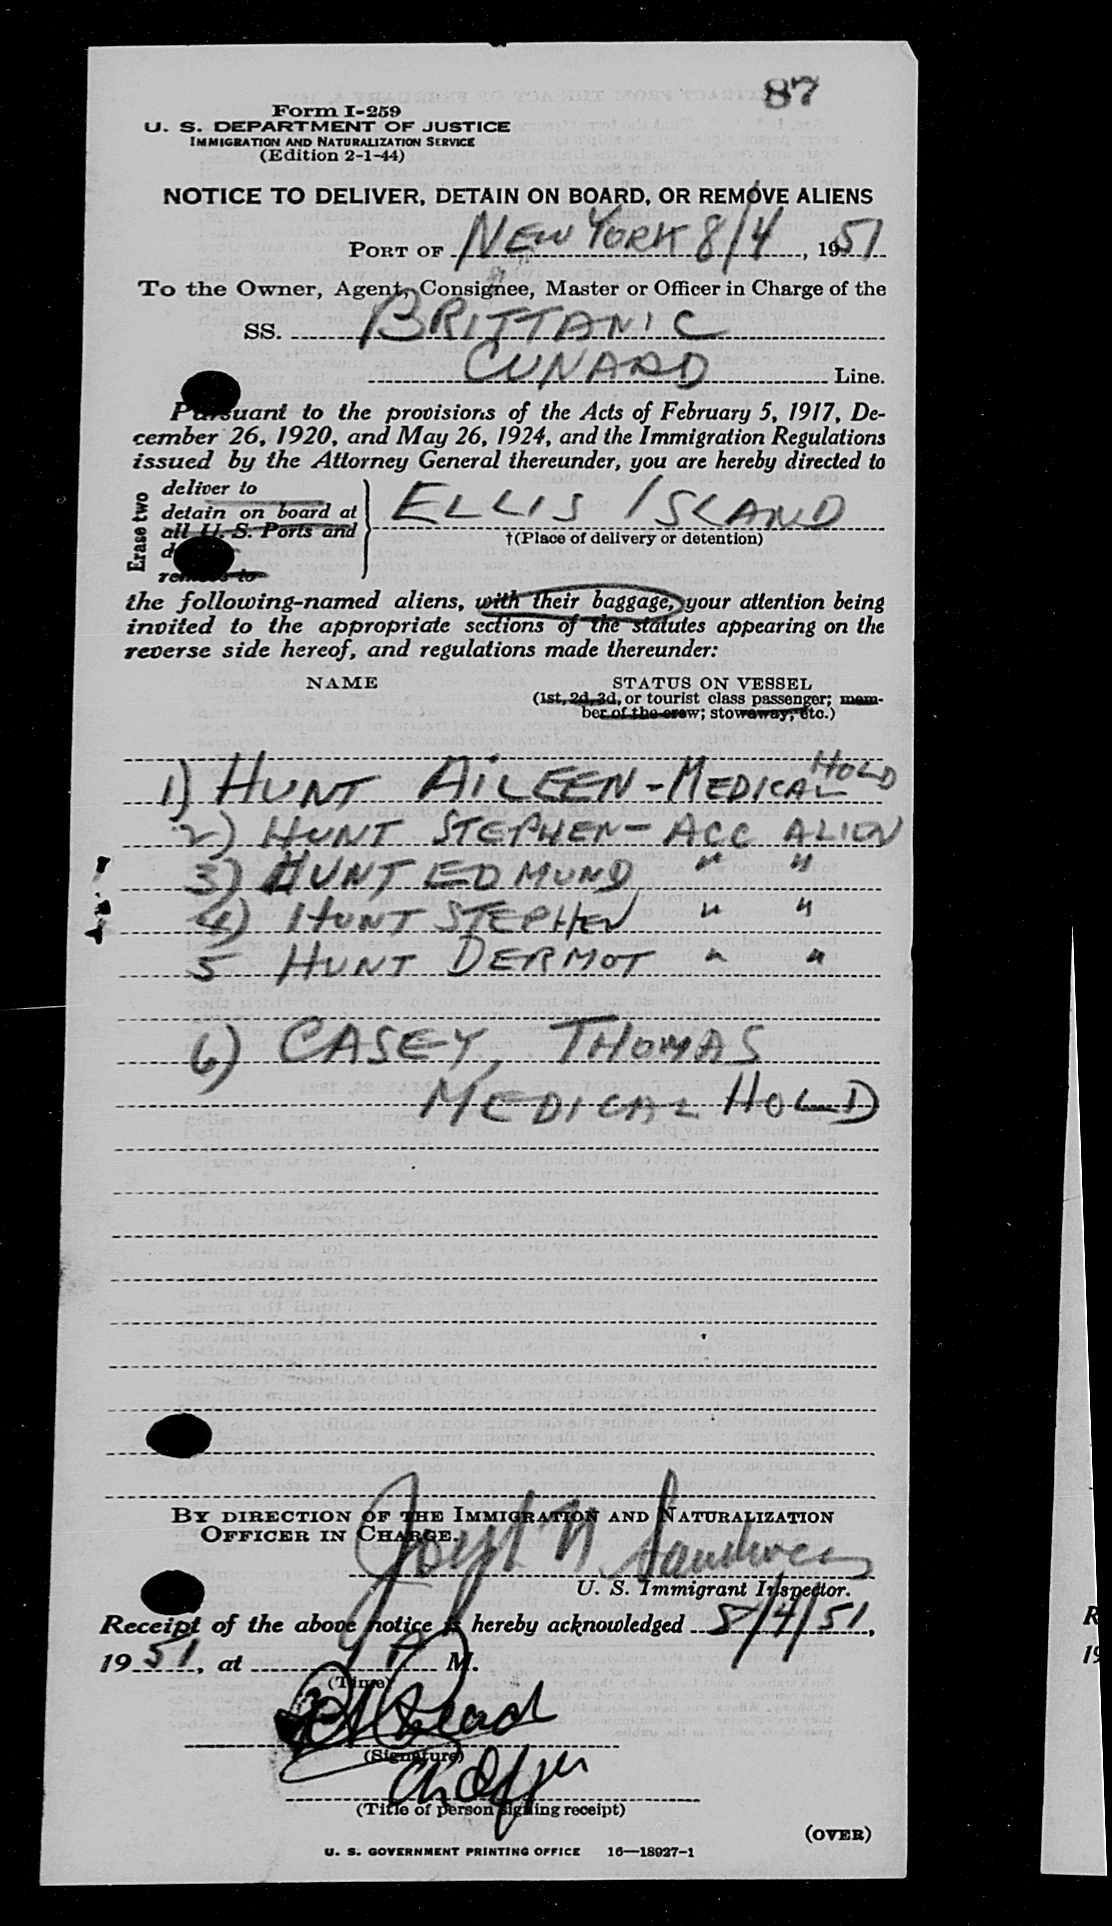 87
Form I-259
U. S. DEPARTMENT OF JUSTICE
IMMIGRATION AND NATURALIZATION SERVICE
(Edition 2-1-44)
NOTICE TO DELIVER, DETAIN ON BOARD, OR REMOVE ALIENS
PORT OF NEW YORK 8/4, 1951
To the Owner, Agent, Consignee, Master or Officer in Charge of the
SS. BRITTANIC
CUNARD Line.
Pursuant to the provisions of the Acts of February 5, 1917, De-
cember 26, 1920, and May 26, 1924, and the Immigration Regulations
issued by the Attorney General thereunder, you are hereby directed to
Erase two
deliver to
detain on board at
all U. S. Ports and
remove to
ELLIS ISLAND
†(Place of delivery or detention)
the following-named aliens, with their baggage, your attention being
invited to the appropriate sections of the statutes appearing on the
reverse side hereof, and regulations made thereunder:
NAME STATUS ON VESSEL
(1st, 2d, 3d, or tourist class passenger; mem-
ber of the crew; stowaway, etc.)
1) HUNT AILEEN - MEDICAL HOLD
2) HUNT STEPHEN - ACC ALIEN
3) HUNT EDMUND " "
4) HUNT STEPHEN " "
5 HUNT DERMOT " "
6) CASEY, THOMAS
MEDICAL HOLD
BY DIRECTION OF THE IMMIGRATION AND NATURALIZATION
OFFICER IN CHARGE.
U. S. Immigrant Inspector.
Receipt of the above notice is hereby acknowledged 8/4/51,
1951, at A M.
(Time)
(Signature)
(Title of person signing receipt)
(OVER)
U. S. GOVERNMENT PRINTING OFFICE 16—18927-1